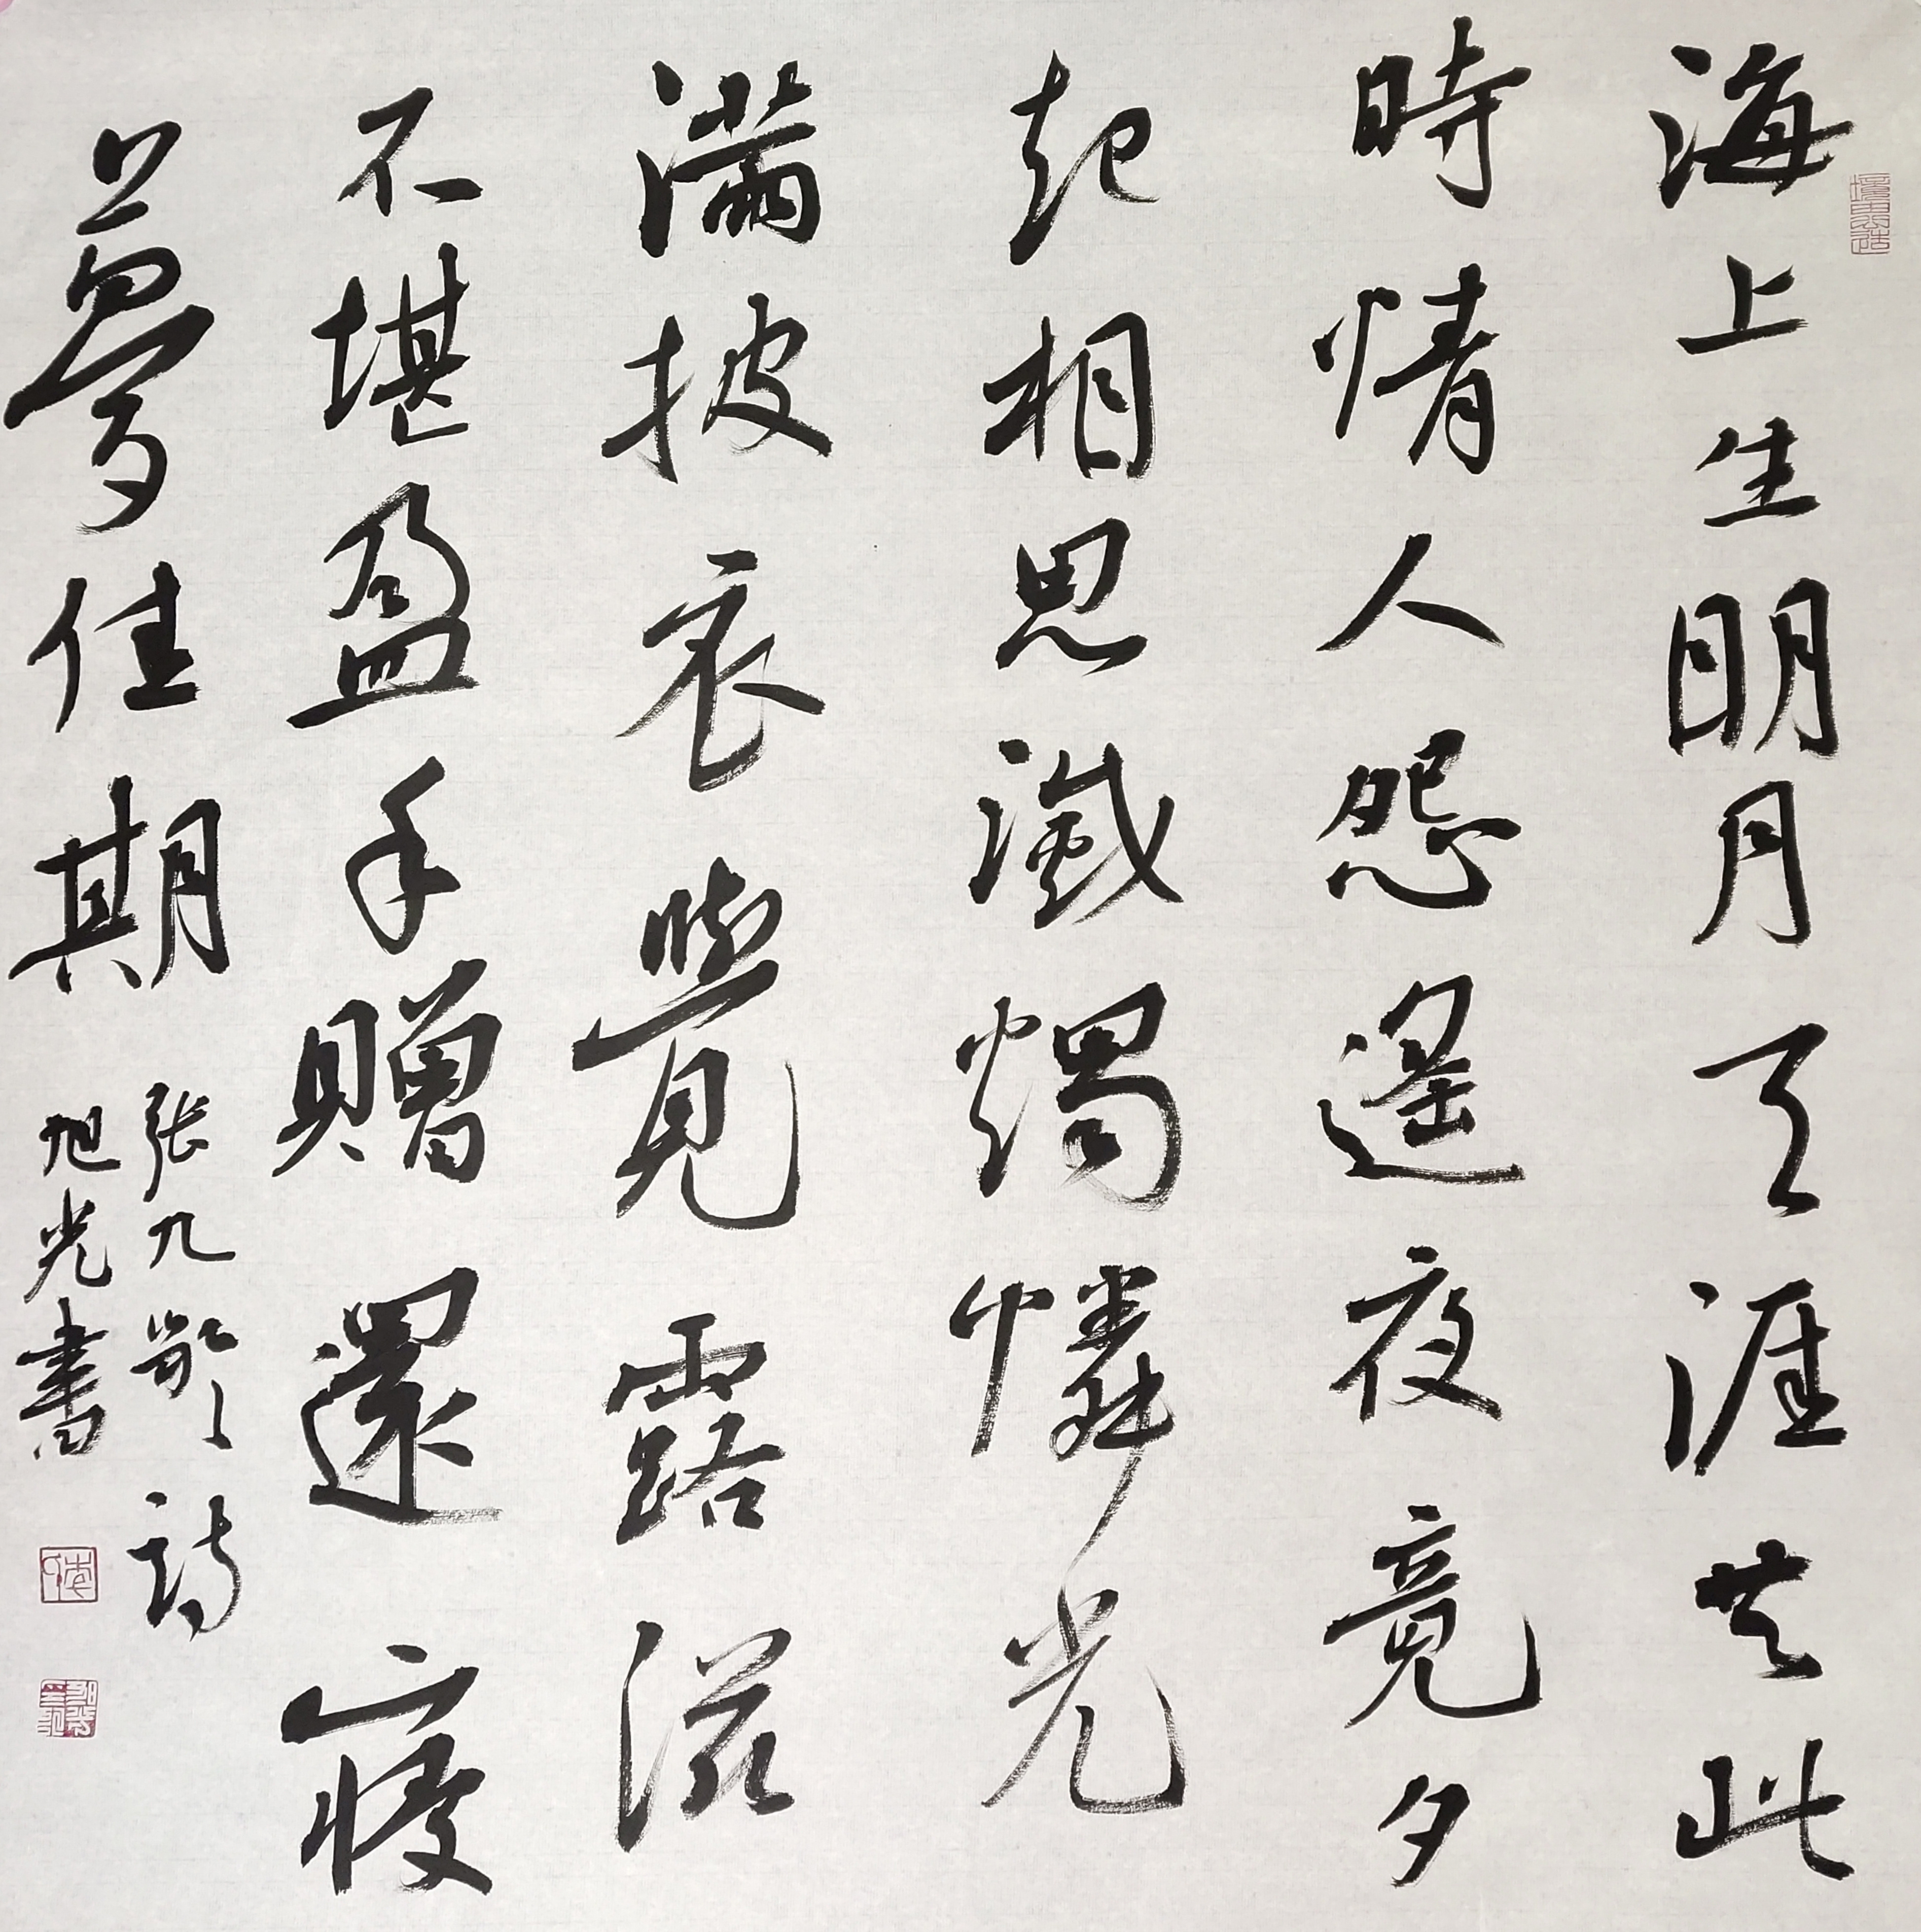 海上生明月天涯共此
時情人怨遙夜竟夕
起相思滅燭憐光
滿披衣覺露滋
不堪盈手贈還寢
夢佳期
张九齡詩
旭光書